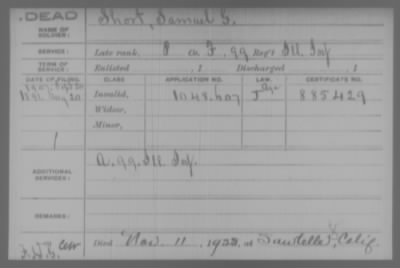 DEAD
NAME OF SOLDIER: Short, Samuel G.
SERVICE: Late rank, P Co. F, 99 Reg't Ill. Inf
TERM OF SERVICE: Enlisted , 1 Discharged , 1
DATE OF FILING. CLASS APPLICATION NO. LAW. CERTIFICATE NO.
1891 Aug 20 Invalid, 1048.607 J Age 885429
Widow,
1 Minor,
ADDITIONAL SERVICES: A. 99. Ill. Inf.
REMARKS:
Died Nov. 11, 1922, at Sawtelle, Calif.